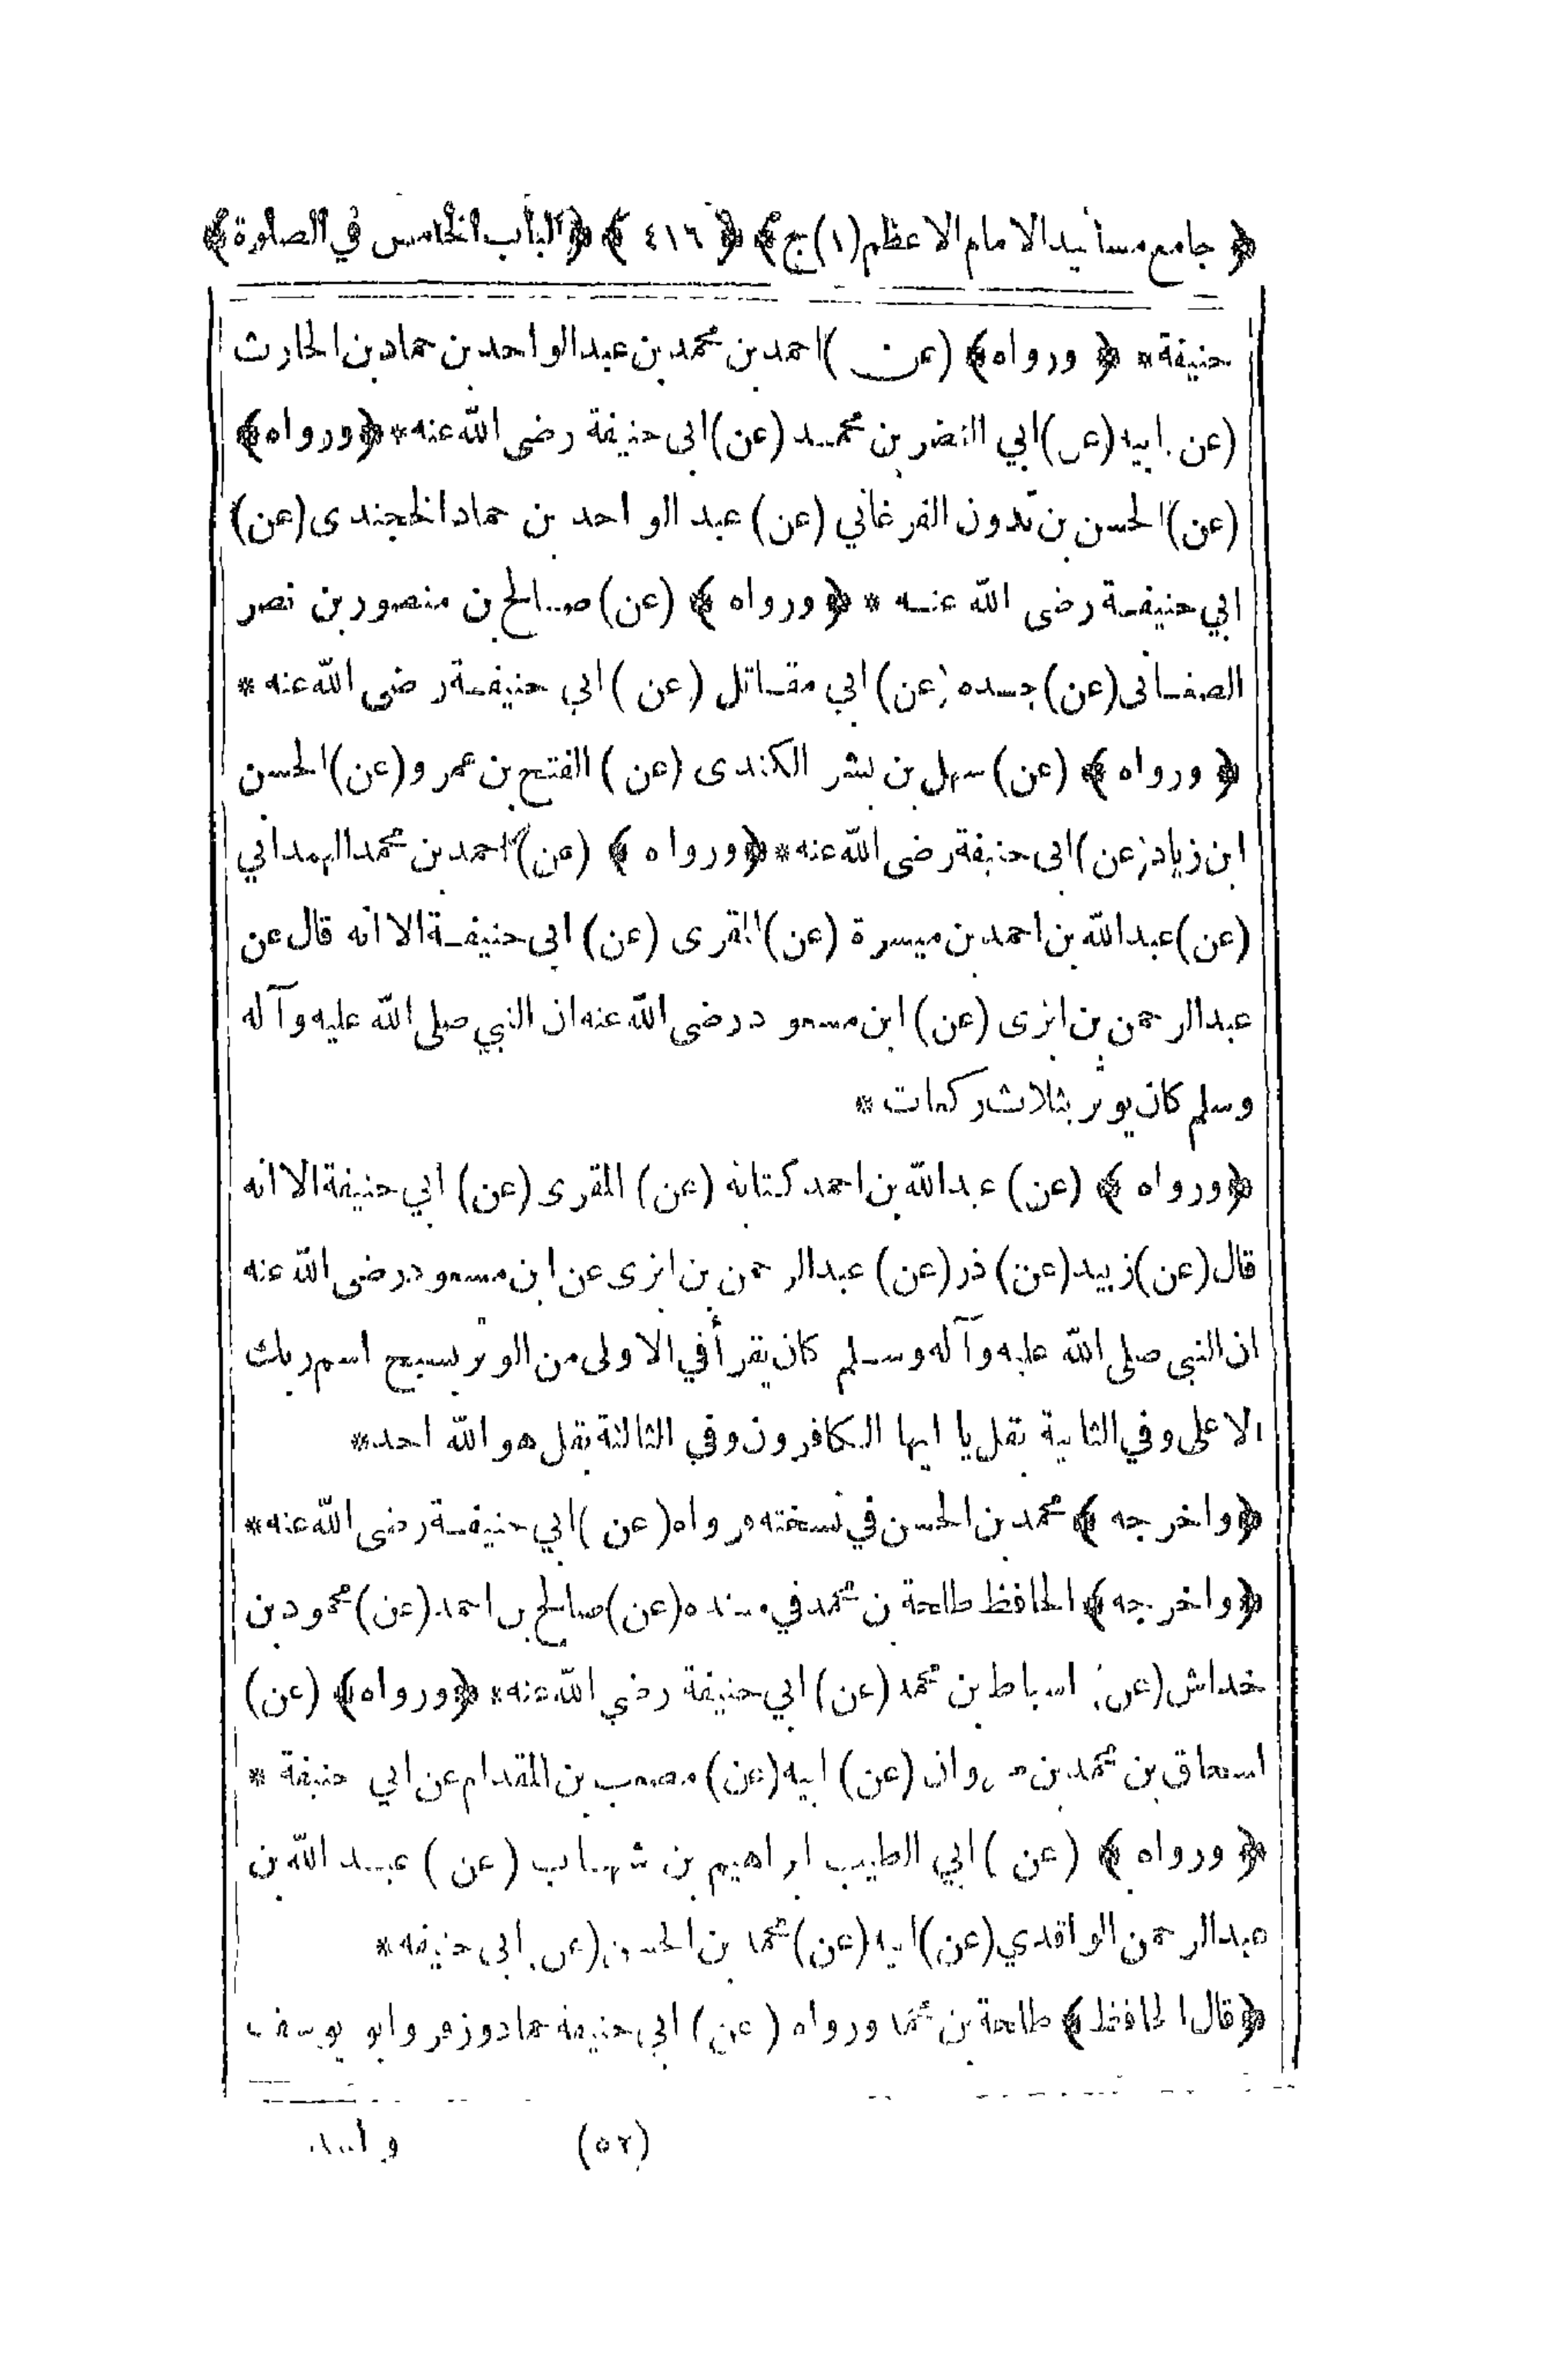 ﴿ جامع مسانيد الامام الاعظم (١) ج ﴾ ﴿ ٤١٦ ﴾ ﴿ الباب الخامس في الصلوة ﴾
حنيفة * ﴿ ورواه ﴾ (عن) احمد بن محمد بن عبد الواحد بن حماد بن الحارث
(عن) ابيه (عن) ابي النضر بن محمد (عن) ابى حنيفة رضى الله عنه * ﴿ ورواه ﴾
(عن) الحسن بن الفرغاني (عن) عبد الواحد بن حماد الخجندى (عن)
ابي حنيفة رضى الله عنه * ﴿ ورواه ﴾ (عن) صالح بن منصور بن نصر
الصغانى (عن) جده (عن) ابي مقاتل (عن) ابي حنيفة رضى الله عنه *
﴿ ورواه ﴾ (عن) سهل بن بشر الكندى (عن) الفتح بن عمرو (عن) الحسن
ابن زياد (عن) ابى حنيفة رضى الله عنه * ﴿ ورواه ﴾ (عن) احمد بن محمد الهمدانى
(عن) عبد الله بن احمد بن ميسرة (عن) المقرى (عن) ابى حنيفة الا انه قال عن
عبد الرحمن بن ابزى (عن) ابن مسعود رضى الله عنه ان النبي صلى الله عليه وآله
وسلم كان يوتر بثلاث ركعات *
﴿ ورواه ﴾ (عن) عبد الله بن احمد كتابة (عن) المقرى (عن) ابي حنيفة الا انه
قال (عن) زبيد (عن) ذر (عن) عبد الرحمن بن ابزى عن ابن مسعود رضى الله عنه
ان النبي صلى الله عليه وآله وسلم كان يقرأ في الاولى من الوتر بسبح اسم ربك
الاعلى وفي الثانية بقل يا ايها الكافرون وفي الثالثة بقل هو الله احد *
﴿ واخرجه ﴾ محمد بن الحسن في نسخته فرواه (عن) ابي حنيفة رضى الله عنه *
﴿ واخرجه ﴾ الحافظ طلحة بن محمد في مسنده (عن) صالح بن احمد (عن) محمود بن
خداش (عن) اسباط بن محمد (عن) ابي حنيفة رضي الله عنه * ﴿ ورواه ﴾ (عن)
اسحاق بن محمد بن مروان (عن) ابيه (عن) مصعب بن المقدام عن ابي حنيفة *
﴿ ورواه ﴾ (عن) ابي الطيب ابراهيم بن شهاب (عن) عبد الله بن
عبد الرحمن الواقدي (عن) ابيه (عن) محمد بن الحسن (عن) ابى حنيفة *
﴿ قال الحافظ ﴾ طلحة بن محمد ورواه (عن) ابى حنيفة حماد وزفر وابو يوسف
(٥٢)